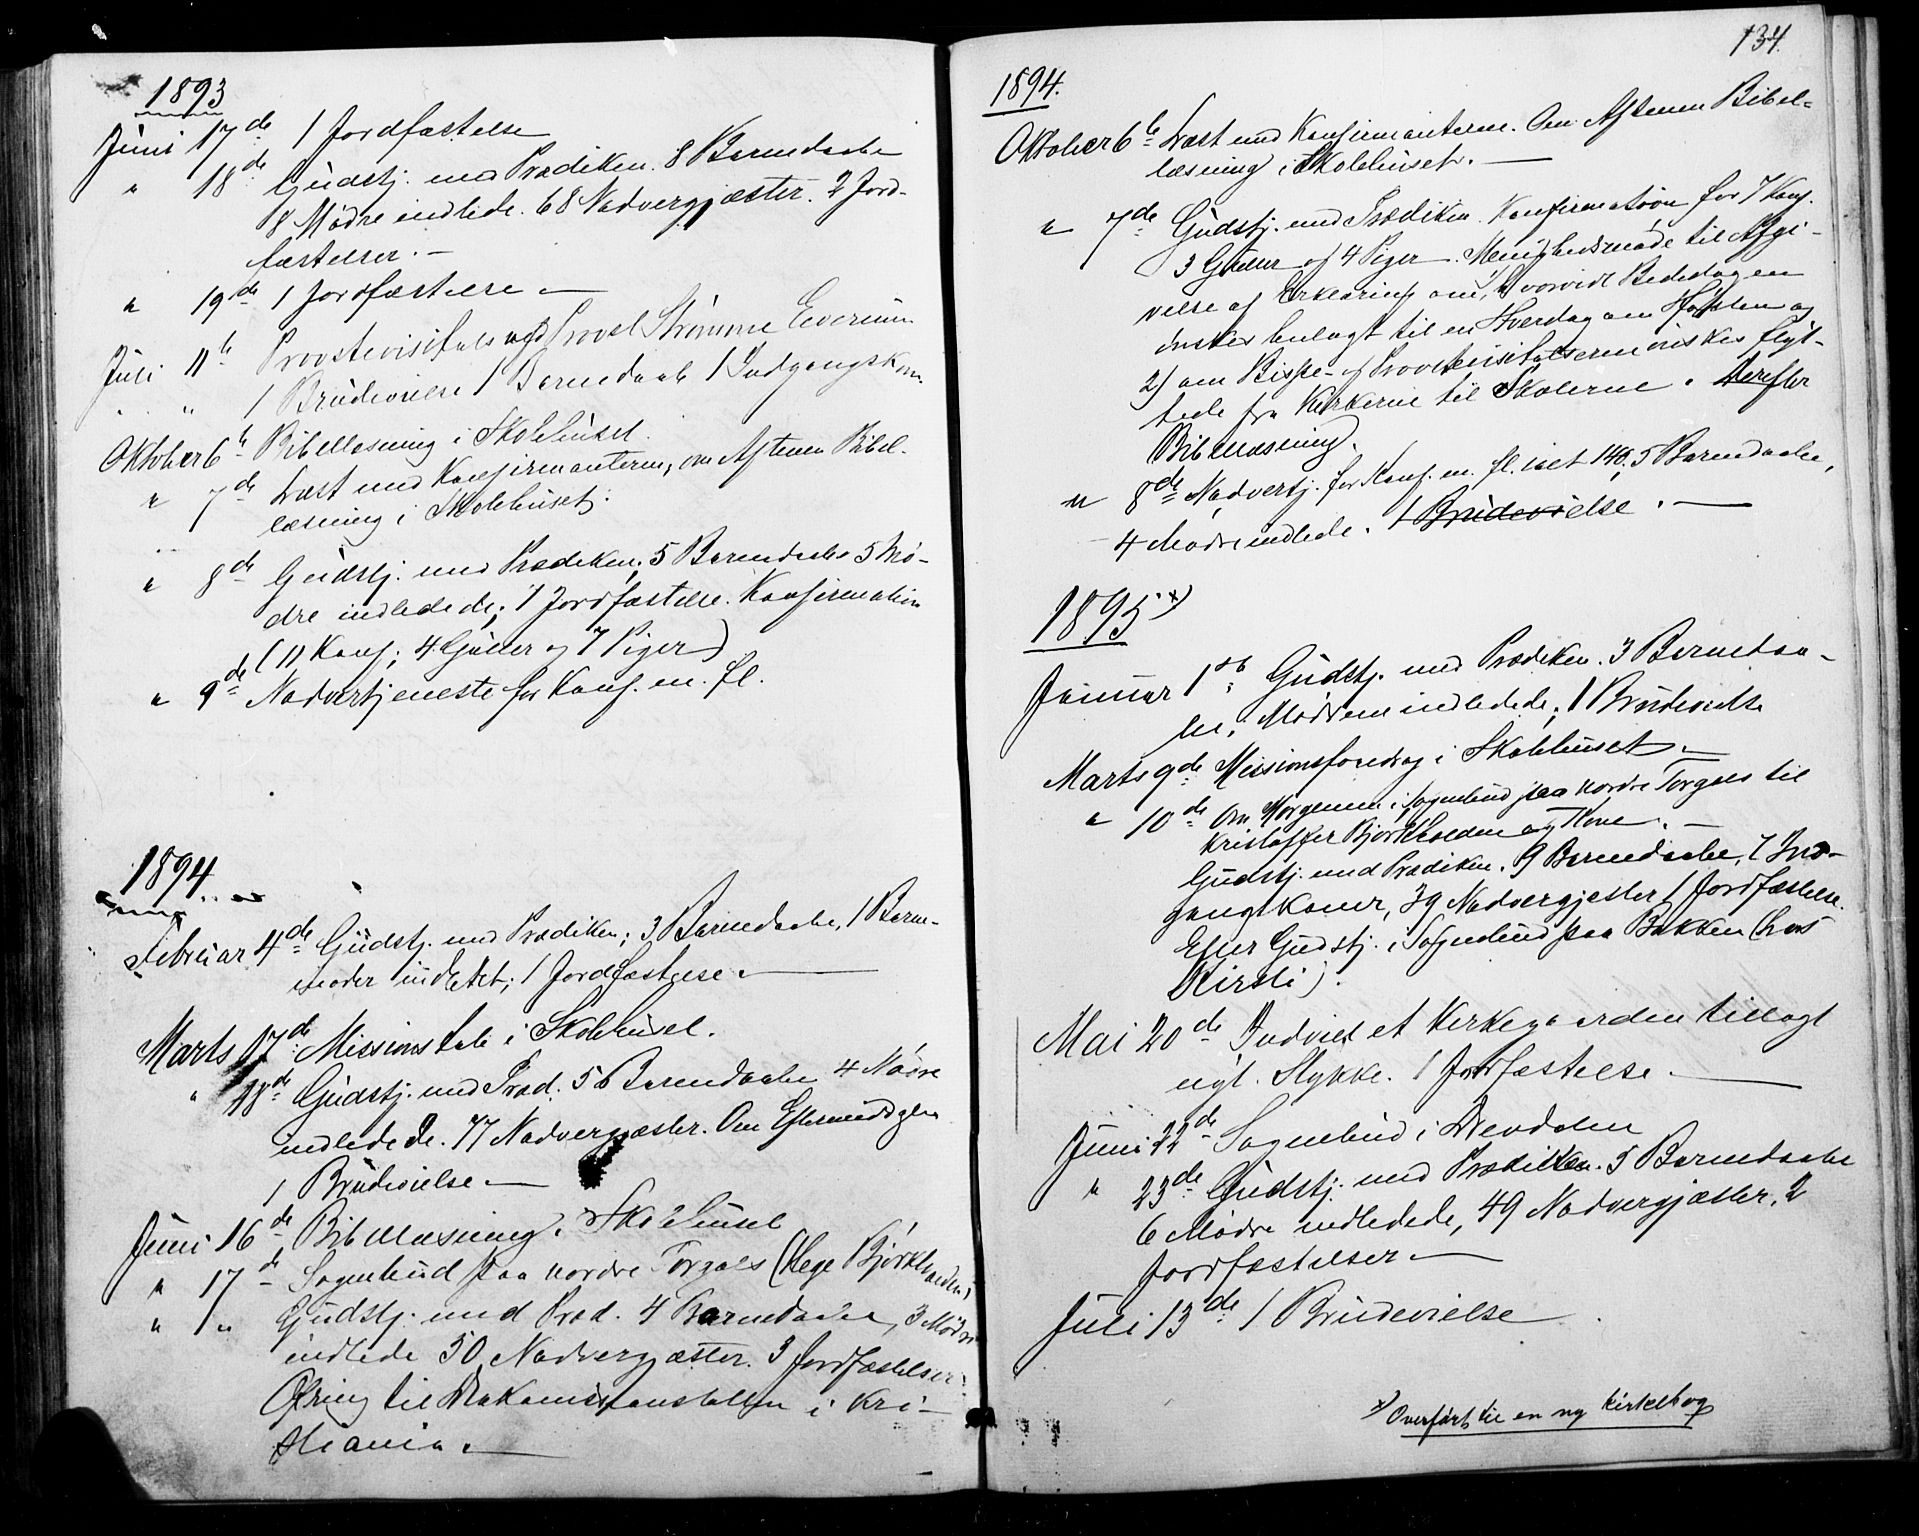 1893
Juni 17de 1 Jordfæstelse
" 18de Gudstj. med Prædiken. 8 Barnedaabe
8 Mødre indlede. 68 Nadvergjæster. 2 Jord-
fæstelser. —
" 19de 1 Jordfæstelse —
Juli 11te Provstevisitats ved Provst Strømme
" " 1 Brudevielse 1 Barnedaab 1 Indgangskone
Oktober 6te Bibellæsning i Skolehuset.
" 7de Læst med Konfirmanterne, om Aftenen Bibel-
læsning i Skolehuset.
" 8de Gudstj. med Prædiken; 5 Barnedaabe 5 Mø-
dre indledede; 1 Jordfæstelse. Konfirmation
(11 Konf; 4 Gutter og 7 Piger)
" 9de Nadvertjeneste for Konf. m. fl.
1894
Februar 4de Gudstj. med Prædiken; 3 Barnedaabe, 1 Barne-
moder indledet; 1 Jordfæstelse. —
Marts 17de Missionstale i Skolehuset.
" 18de Gudstj. med Præd. 5 Barnedaabe 4 Mødre
indledede. 77 Nadvergjæster. Om Eftermiddagen
1 Brudevielse —
Juni 16de Bibellæsning i Skolehuset
" 17de Sognebud paa nordre Torgals (Hege Bjørkhaaden)
" " Gudstj. med Præd. 4 Barnedaabe, 3 Mødre
indlede 50 Nadvergjæster. 3 Jordfæstelser.
Ofring til Diakonisseanstalten i Kri-
stiania. —
134.
1894.
Oktober 6te Læst med Konfirmanterne. Om Aftenen Bibel-
læsning i Skolehuset. —
" 7de Gudstj. med Prædiken. Konfirmation for 7 Konf.
3 Gutter og 4 Piger. Menighedsmøde til Afgi-
velse af Erklæring om, 1) hvorvidt Bededagen
ønskes henlagt til en Hverdag om Høsten og
2) om Bispe- og Provstevisitatserne ønskes flyt-
tede fra Kirkerne til Skolerne. Derefter
Bibellæsning.
" 8de Nadvertj. for Konf. m. fl. i alt 140, 5 Barnedaabe,
4 Mødre indlede. 1 Brudevielse. —
1895 x)
Januar 1ste Gudstj. med Prædiken. 3 Barnedaa-
be, Mødrene indledede; 1 Brudevielse
Marts 9de Missionsforedrag i Skolehuset. —
" 10de Om Morgenen i Sognebud paa nordre Torgals til
Kristoffer Bjørkhaaden og Kone. —
Gudstj. med Prædiken. 9 Barnedaabe, 7 Ind-
gangskoner, 39 Nadvergjester, 1 Jordfæstelse.
Efter Gudstj. i Sognebud paa Bakken (hos
Kirsti).
Mai 20de Indviet et Kirkegaarden tillagt
nyt Stykke. 1 Jordfæstelse. —
Juni 22de Sognebud i Devdalen
" 23de Gudstj. med Prædiken. 5 Barnedaabe
6 Mødre indledede, 49 Nadvergjæster, 2
Jordfæstelser —
Juli 13de 1 Brudevielse
x) Overført til en ny kirkebog